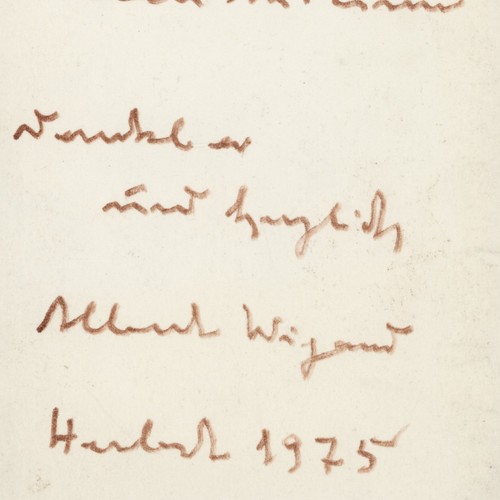 dankbar
und herzlich
Albert Wigand
Herbst 1975